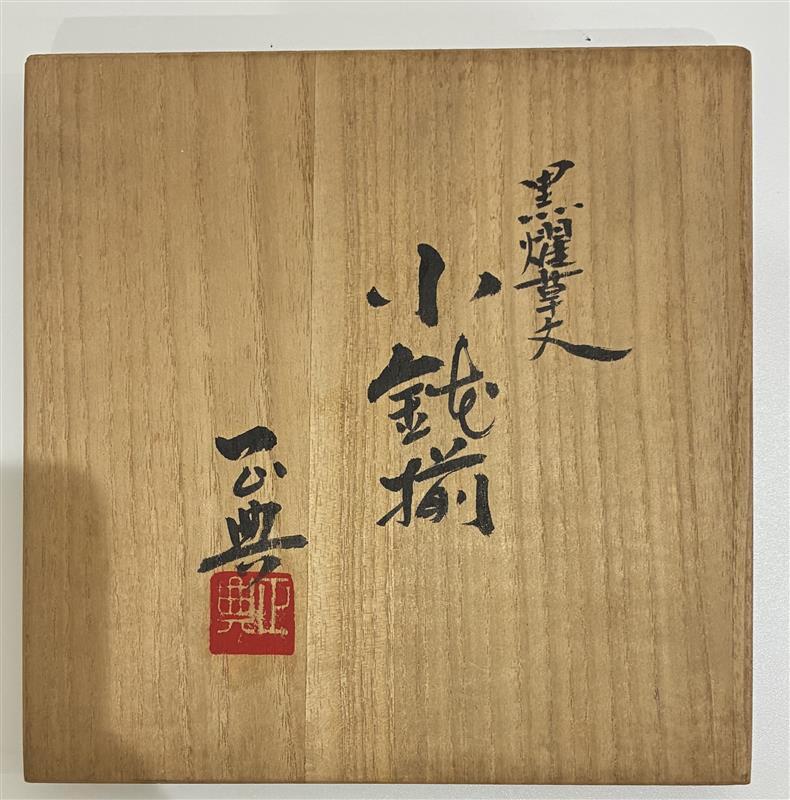 黒燿草文
小鉢揃
正典
正典